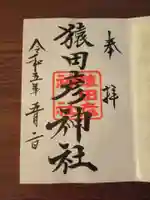 奉拝
猿田彦神社
令和五年五月二日